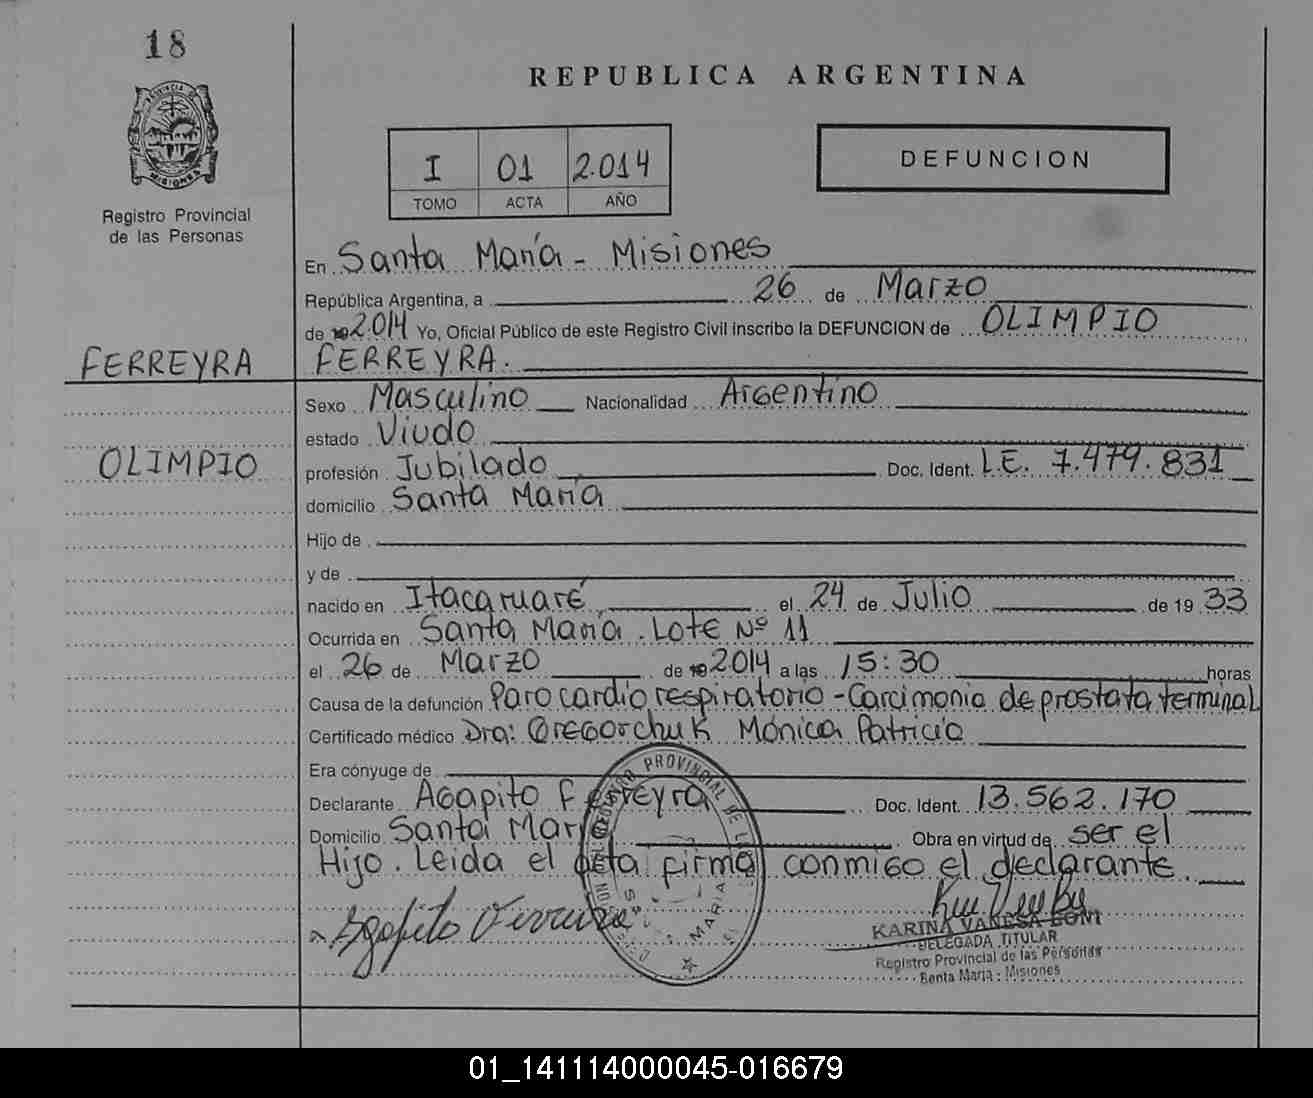 18
REPUBLICA ARGENTINA
PROVINCIA DE MISIONES
Registro Provincial
de las Personas
I 01 2.014
TOMO ACTA AÑO
DEFUNCION
En Santa María - Misiones
República Argentina, a 26 de Marzo
de 19 2.014 Yo, Oficial Público de este Registro Civil inscribo la DEFUNCION de OLIMPIO
FERREYRA FERREYRA.
Sexo Masculino Nacionalidad Argentino
estado Viudo
OLIMPIO profesión Jubilado Doc. Ident. L.E. 7.479.831
domicilio Santa María
Hijo de
y de
nacido en Itacaruaré el 24 de Julio de 19 33
Ocurrida en Santa María. Lote Nº 11
el 26 de Marzo de 19 2.014 a las 15:30 horas
Causa de la defunción Paro cardio respiratorio - Carcimonia de prostata terminal
Certificado médico Dra: Gregorchuk Mónica Patricia
Era cónyuge de
Declarante Agapito Ferreyra Doc. Ident. 13.562.170
Domicilio Santa María Obra en virtud de ser el
Hijo. Leida el acta firma conmigo el declarante
Agapito Ferreira
REGISTRO PROVINCIAL DE LAS
MARIA
KARINA VANESA BONI
DELEGADA TITULAR
Registro Provincial de las Personas
Santa María - Misiones
01_141114000045-016679